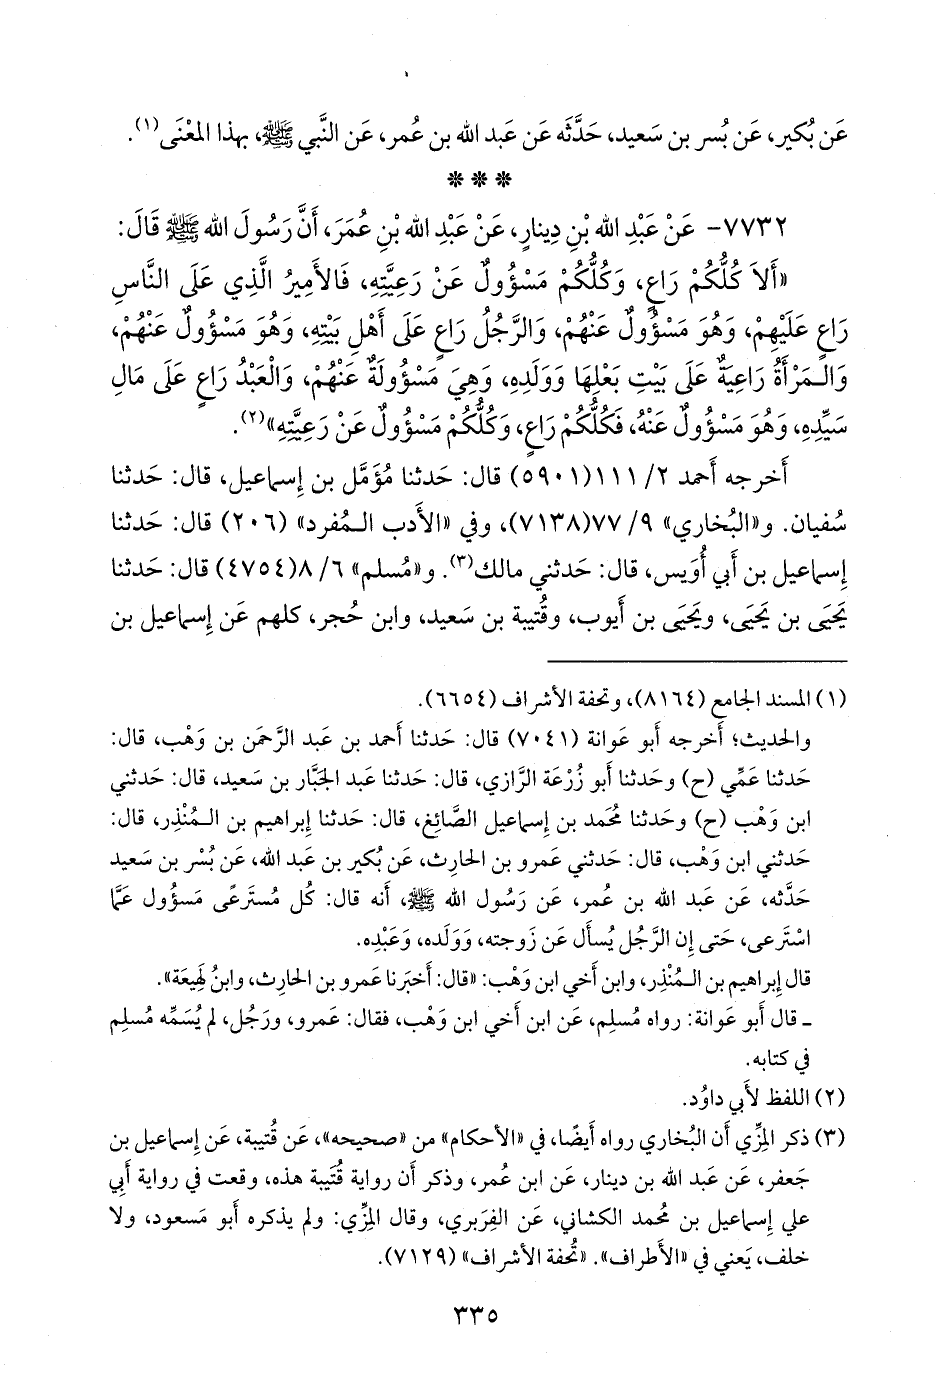 عَن بُكير، عَن بُسر بن سَعيد، حَدَّثه عَن عَبد الله بن عُمر، عَن النَّبي ﷺ، بهذا المعْنَى(١).
***
٧٧٣٢- عَنْ عَبْدِ الله بْنِ دِينارٍ، عَنْ عَبْدِ الله بْنِ عُمَرَ، أَنَّ رَسُولَ الله ﷺ قَالَ:
«أَلاَ كُلُّكُمْ رَاعٍ، وَكُلُّكُمْ مَسْؤُولٌ عَنْ رَعِيَّتِهِ، فَالأَمِيرُ الَّذِي عَلَى النَّاسِ
رَاعٍ عَلَيْهِمْ، وَهُوَ مَسْؤُولٌ عَنْهُمْ، وَالرَّجُلُ رَاعٍ عَلَى أَهْلِ بَيْتِهِ، وَهُوَ مَسْؤُولٌ عَنْهُمْ،
وَالْمَرْأَةُ رَاعِيَةٌ عَلَى بَيْتِ بَعْلِهَا وَوَلَدِهِ، وَهِيَ مَسْؤُولَةٌ عَنْهُمْ، وَالْعَبْدُ رَاعٍ عَلَى مَالِ
سَيِّدِهِ، وَهُوَ مَسْؤُولٌ عَنْهُ، فَكُلُّكُمْ رَاعٍ، وَكُلُّكُمْ مَسْؤُولٌ عَنْ رَعِيَّتِهِ»(٢).
أَخرجه أَحمد ٢/ ١١١(٥٩٠١) قال: حَدثنا مُؤَمَّل بن إِسماعيل، قال: حَدثنا
سُفيان. و«البُخاري» ٩/ ٧٧(٧١٣٨)، وفي «الأَدب المُفرد» (٢٠٦) قال: حَدثنا
إِسماعيل بن أَبي أُوَيس، قال: حَدثني مالك(٣). و«مُسلم» ٦/ ٨(٤٧٥٤) قال: حَدثنا
يَحيَى بن يَحيَى، ويَحيَى بن أَيوب، وقُتيبة بن سَعيد، وابن حُجر، كلهم عَن إِسماعيل بن
(١) المسند الجامع (٨١٦٤)، وتحفة الأشراف (٦٦٥٤).
والحديث؛ أَخرجه أَبو عَوانة (٧٠٤١) قال: حَدثنا أَحمد بن عَبد الرَّحمَن بن وَهْب، قال:
حَدثنا عَمِّي (ح) وحَدثنا أَبو زُرْعَة الرَّازي، قال: حَدثنا عَبد الجَبَّار بن سَعيد، قال: حَدثني
ابن وَهْب (ح) وحَدثنا مُحَمد بن إِسماعيل الصَّائِغ، قال: حَدثنا إِبراهيم بن المُنْذِر، قال:
حَدثني ابن وَهْب، قال: حَدثني عَمرو بن الحارِث، عَن بُكير بن عَبد الله، عَن بُسْر بن سَعيد
حَدَّثه، عَن عَبد الله بن عُمر، عَن رَسُول الله ﷺ، أَنه قال: كُل مُستَرعًى مَسؤُول عَمَّا
اسْتَرعى، حَتى إِن الرَّجُل يُسأَل عَن زَوجته، وَوَلَده، وَعَبْدِه.
قال إِبراهيم بن المُنْذِر، وابن أَخي ابن وَهْب: «قال: أَخبَرنا عَمرو بن الحارِث، وابنُ لَهِيعَة».
ـ قال أَبو عَوانة: رواه مُسلم، عَن ابن أَخي ابن وَهْب، فقال: عَمرو، ورَجُل، لم يُسَمِّه مُسلِم
في كتابه.
(٢) اللفظ لأَبي داوُد.
(٣) ذكر المِزِّي أَن البُخاري رواه أَيضًا، في «الأَحكام» من «صحيحه»، عَن قُتيبة، عَن إِسماعيل بن
جَعفر، عَن عَبد الله بن دينار، عَن ابن عُمر، وذكر أَن رواية قُتَيبة هذه، وقعت في رواية أَبي
علي إِسماعيل بن مُحمد الكشاني، عَن الفِرَبري، وقال المِزِّي: ولم يذكره أَبو مَسعود، ولا
خلف، يَعني في «الأَطراف». «تُحفة الأشراف» (٧١٢٩).
٣٣٥